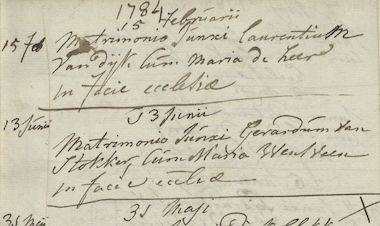 1784
15 Februarii
15 feb Matrimonio Junxi Laurentium
Van Dijk Cum Maria de heer
in facie ecclesiæ
13 Junii
13 Junii Matrimonio Junxi Gerardum Van
Stokker Cum Maria
in facie eccliæ
31 Maji
31 Meij